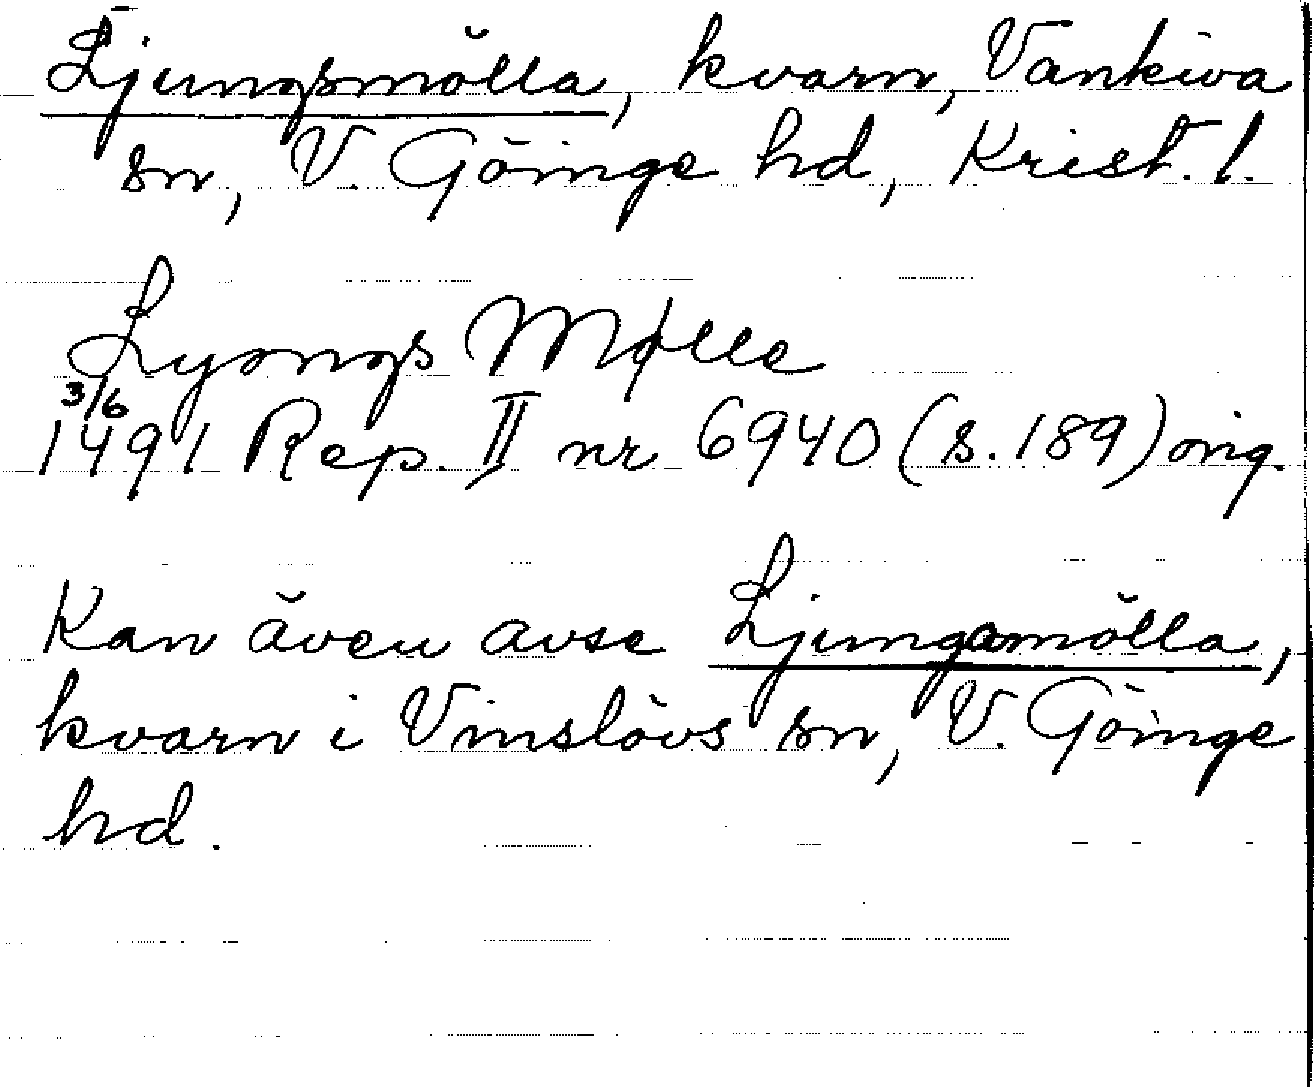 Ljungsmölla, kvarn, Vankiva
sn, V. Göinge hd, Krist. l.
Lyongs Mølle
3/6
1491 Rep. II nr 6940 (s. 189) orig.
Kan även avse Ljungamölla,
kvarn i Vinslövs sn, V. Göinge
hd.